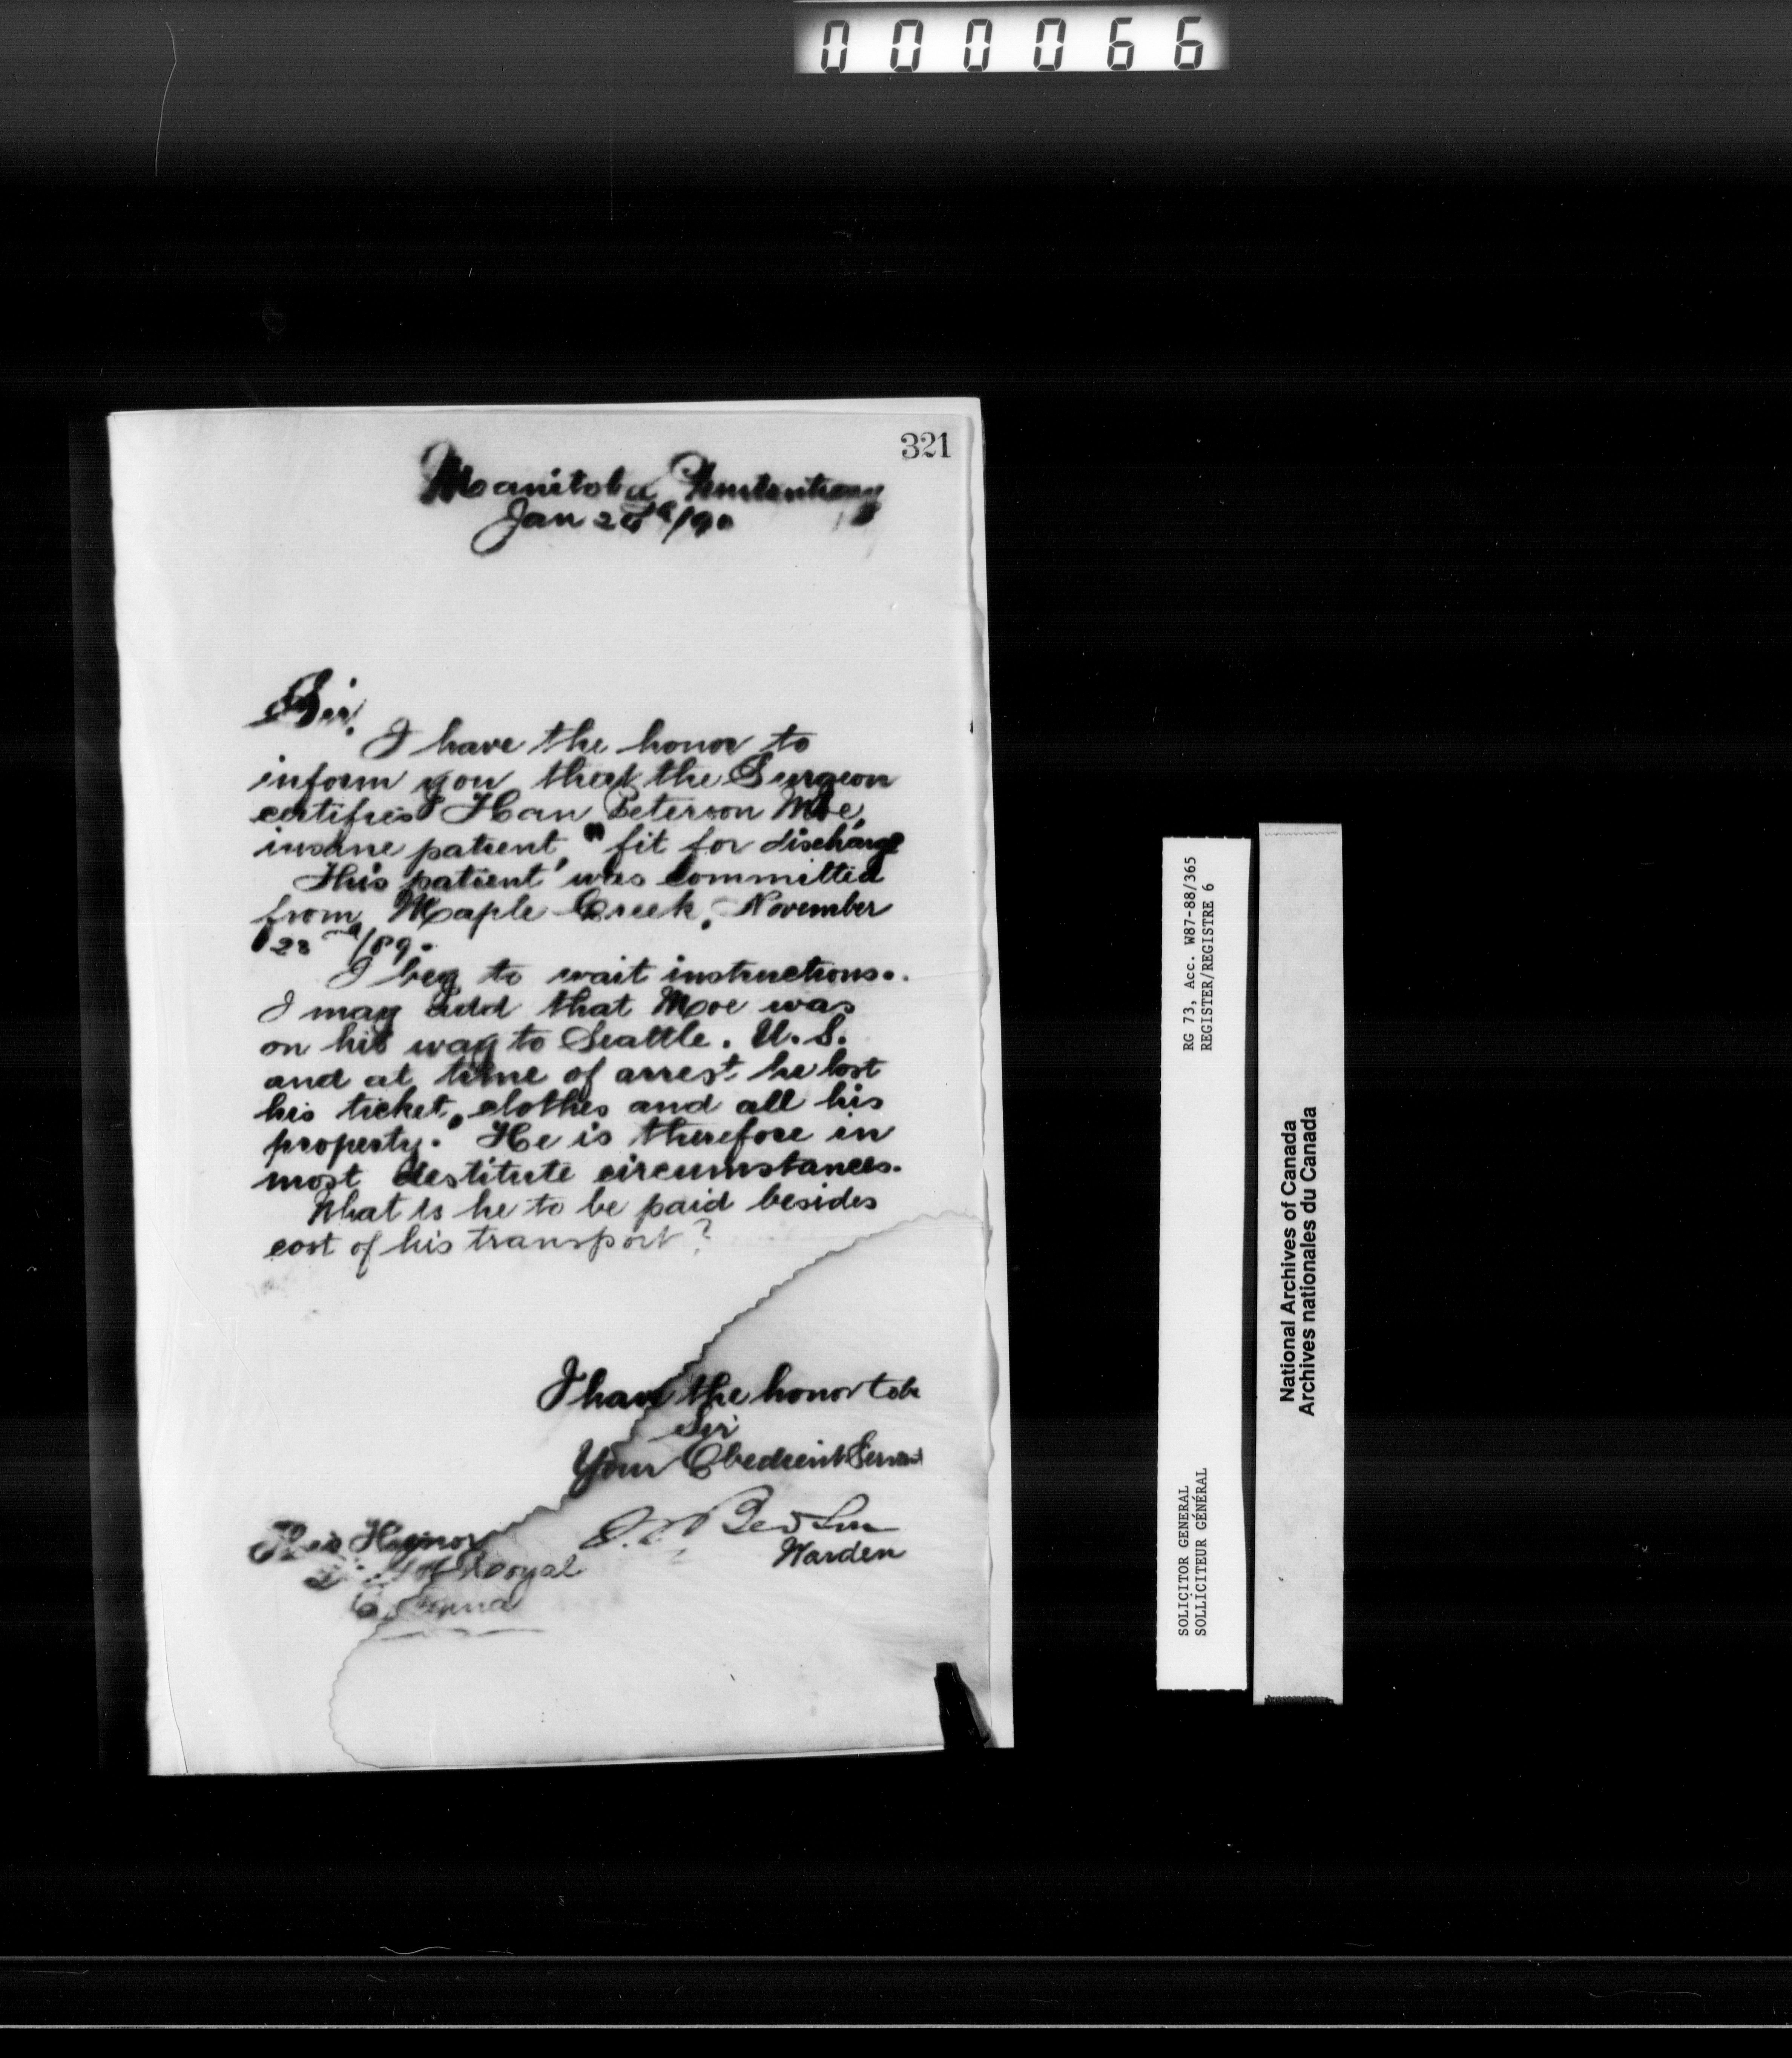 000066
321
Manitoba Penitentiary
Jan 28th/90
Sir,
I have the honor to
inform you that the Surgeon
certifies Han Peterson Moe,
insane patient, "fit for discharge
This patient was committed
from Maple Creek, November
23rd/89.
I beg to wait instructions.
I may add that Moe was
on his way to Seattle. U.S.
and at time of arrest he lost
his ticket, clothes and all his
property. He is therefore in
most destitute circumstances.
What is he to be paid besides
cost of his transport?
I have the honor to be
Sir
Your Obedient Servant
S. L. Bedson
Warden
His Honor
Royal
Regina
RG 73, Acc. W87-88/365
REGISTER/REGISTRE 6
SOLICITOR GENERAL
SOLLICITEUR GÉNÉRAL
National Archives of Canada
Archives nationales du Canada